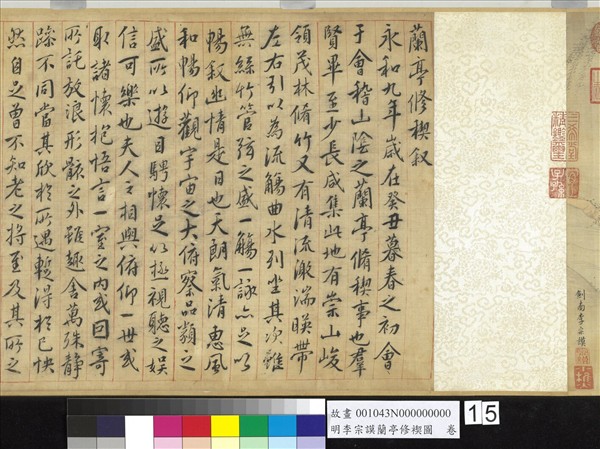 三希堂精鑑璽
宜子孫
蘭亭修禊叙
永和九年歲在癸丑暮春之初會
于會稽山陰之蘭亭脩禊事也羣
賢畢至少長咸集此地有崇山峻
領茂林脩竹又有清流激湍暎帶
左右引以為流觴曲水列坐其次雖
無絲竹管弦之盛一觴一詠亦足以
暢叙幽情是日也天朗氣清惠風
和暢仰觀宇宙之大俯察品類之
盛所以遊目騁懷足以極視聽之娛
信可樂也夫人之相與俯仰一世或
取諸懷抱悟言一室之內或因寄
所託放浪形骸之外雖趣舍萬殊静
躁不同當其欣於所遇暫得於己快
然自足曾不知老之將至及其所之
故畫 001043N000000000
明李宗謨蘭亭修禊圖 卷
15